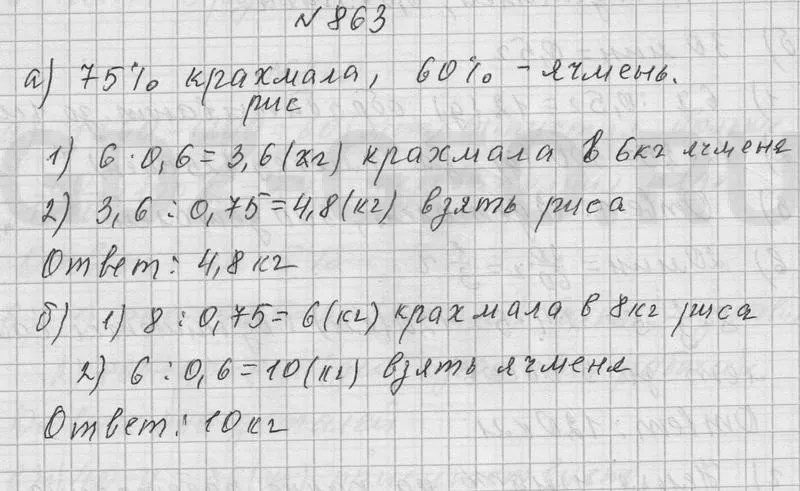 № 863
а) 75% крахмала, 60% - ячмень.
рис
1) 6 · 0,6 = 3,6 (кг) крахмала в 6кг ячменя
2) 3,6 : 0,75 = 4,8 (кг) взять риса
Ответ: 4,8 кг
б) 1) 8 : 0,75 = 6 (кг) крахмала в 8кг риса
2) 6 : 0,6 = 10 (кг) взять ячменя
Ответ: 10 кг